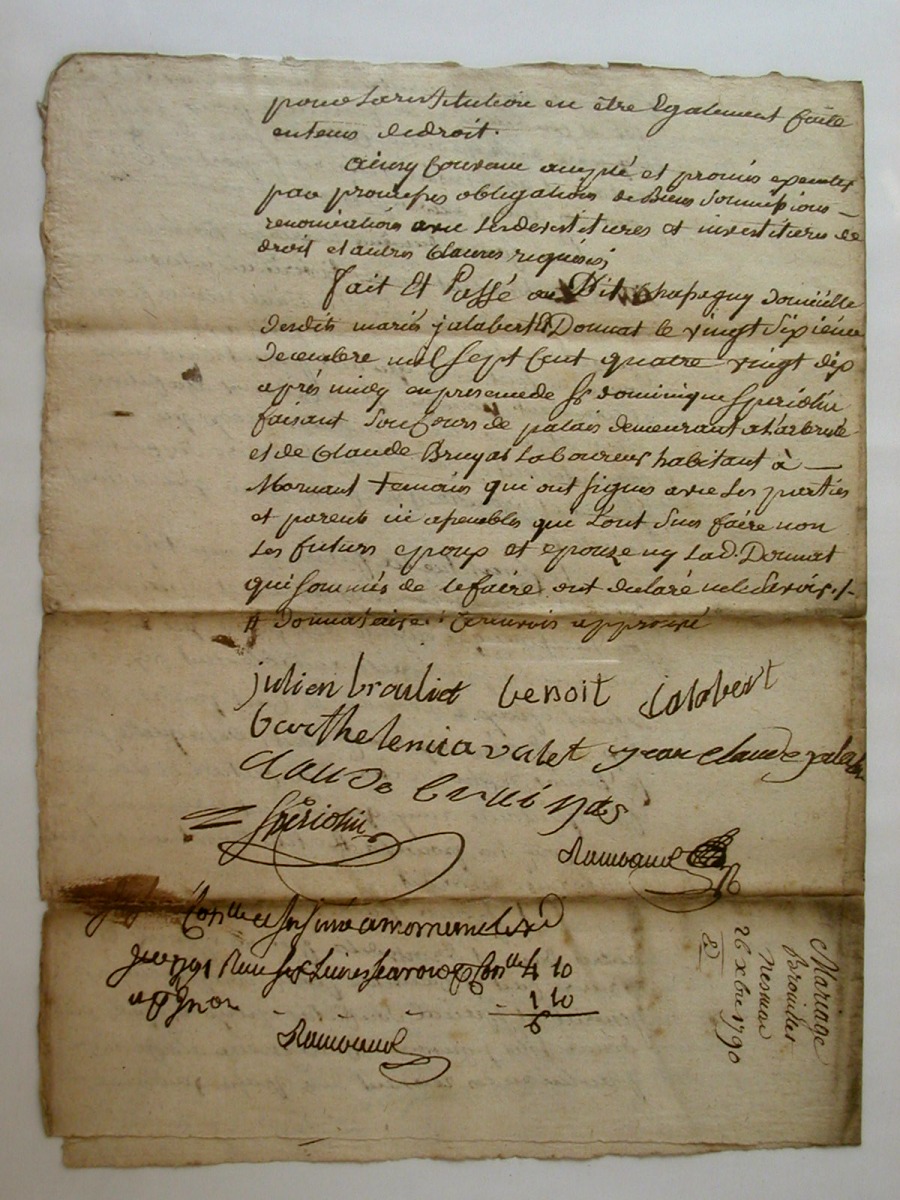 pour la restitution en être Egalement faite
en tems de droit.
Ainsy Convenu accepté et promis executer
par promesses obligations de Biens soumissions –
renonciations avec les devestitures et investitures de
droit et autres Clauses requises
Fait Et Passé au Dit Chapagny domicille
desdits mariés jalabert & Donnat le vingt sixieme
Decembre mil Sept Cent quatre vingt dix
après midy en presence de Sr dominique Speriolin
faisant Son Cours de palais demeurant a Larbrele
et de Claude Bruyas Laboureur habitant à —
Mornant temoins qui ont signes avec les parties
et parents ici assembles qui l'ont sceu faire non
Les futurs epoux et epouze ny lad. Donnat
qui sommés de le faire ont declaré ne le savoir ./.
# Donnataire : renvois approuvé
julien brouliet benoit jalabert
barthelemi avalet jean claude jalaber
claude
Speriolin
Ramoand
Conlle et Insinué a mornant le
Reçu Six Livres Savoir Conlle 4 10
1 10
6
Ramoand
Mariage
26 xbre 1790